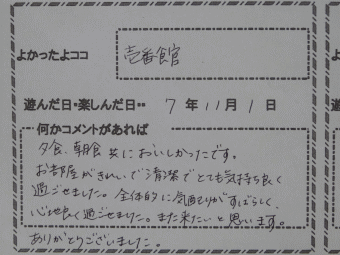 よかったよココ 壱番館
遊んだ日・楽しんだ日・・ 7年11月1日
何かコメントがあれば
夕食、朝食共においしかったです。
お部屋がきれいで清潔でとても気持ち良く
過ごせました。全体的に気配りがすばらしく、
心地良く過ごせました。また来たいと思います。
ありがとうございました。